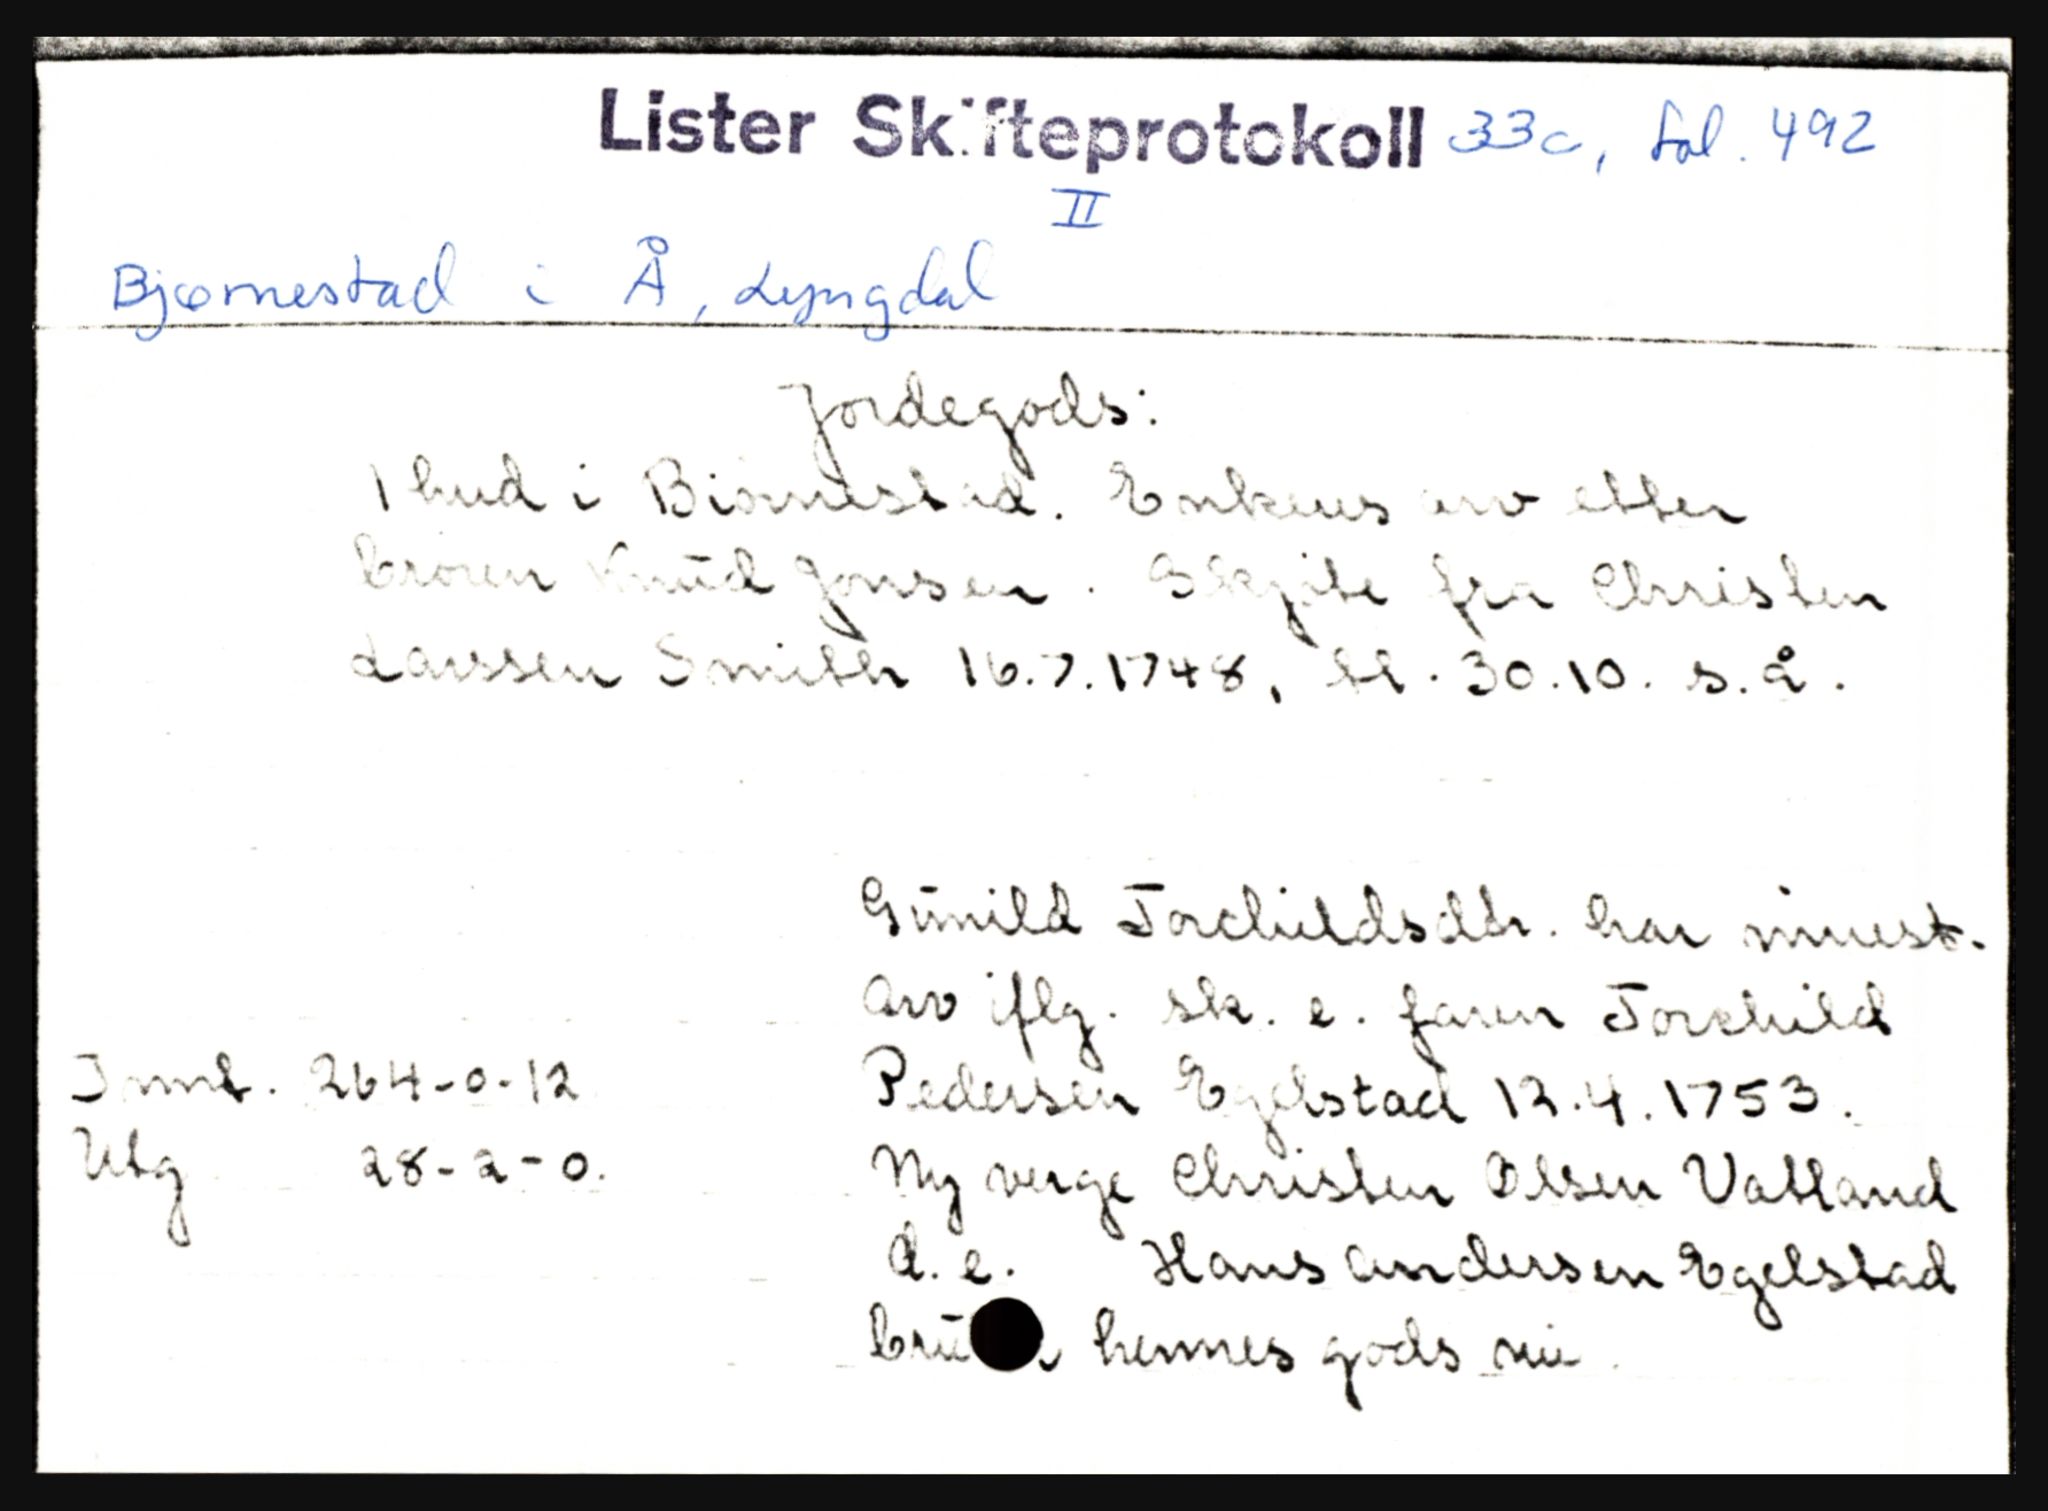 Lister Skifteprotokoll 33c, fol. 492
II
Bjørnestad i Å, Lyngdal
Jordegods:
1 hud i Biornestad. Enkens arv etter
broren Knud Jonsen. Skjøte fra Christen
Larssen Smith 16.7.1748, tl. 30.10. s.å.
Gunild Torchildsdtr. har innest.
Arv iflg. sk. e. faren Torchild
Innt. 264-0-12 Pedersen Egelstad 12.4.1753.
Utg 28-2-0. Ny verge Christen Olsen Vatland
d.e. Hans Andersen Egelstad
hennes gods nu.